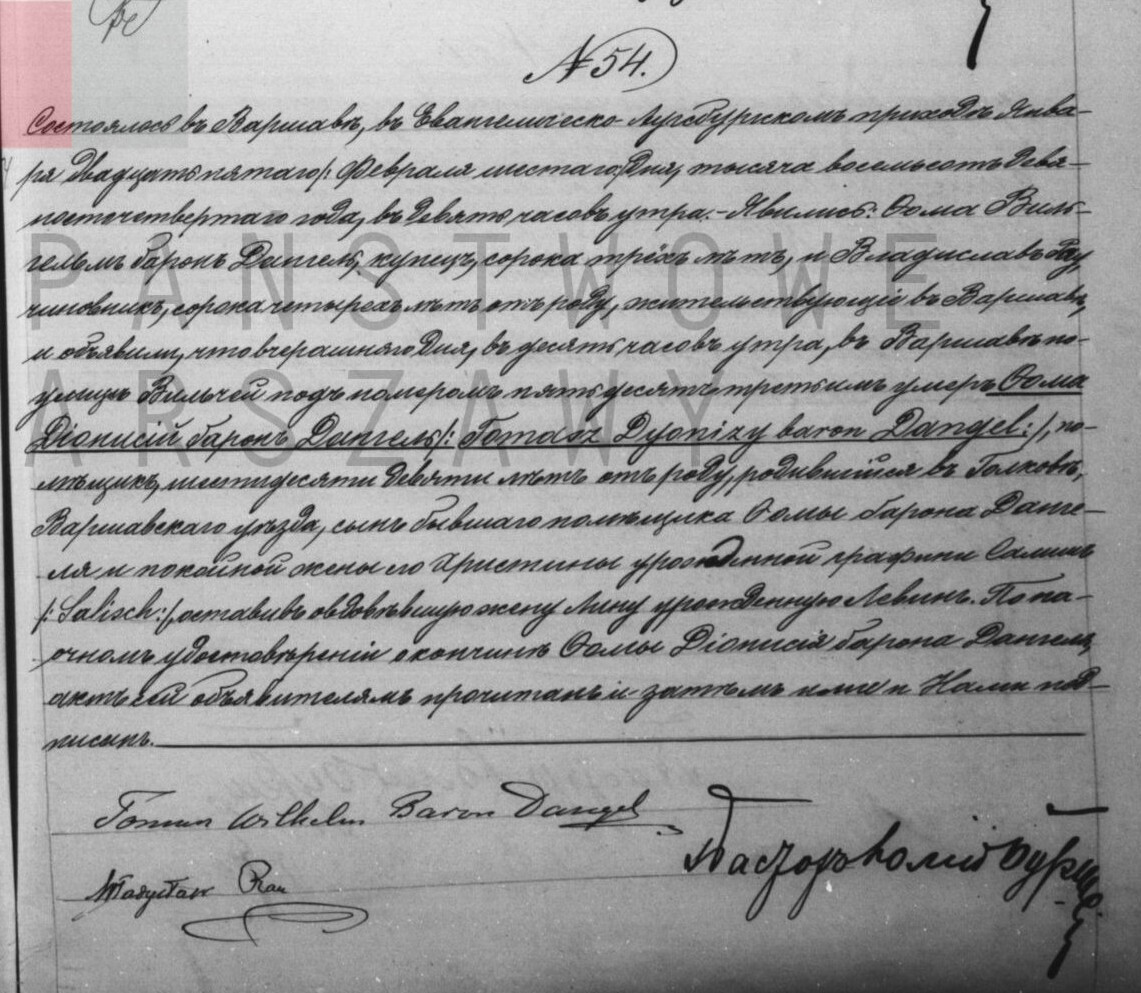 № 54.
Состоялось въ Варшавѣ, въ Евангелическо-Аугсбургскомъ приходѣ Янва-
ря двадцать пятаго /: Февраля шестаго :/ дня, тысяча восемьсотъ девя-
носто четвертаго года, въ девять часовъ утра. – Явились: Ѳома Виль-
гельмъ баронъ Дангель, купецъ, сорока трёхъ лѣтъ, и Владиславъ Рау,
чиновникъ, сорока четырехъ лѣтъ отъ роду, жительствующіе въ Варшавѣ,
и объявили, что вчерашняго дня, въ десять часовъ утра, въ Варшавѣ по
улицѣ Вильчей подъ номеромъ пятьдесятъ третьимъ умеръ Ѳома
Діонисій баронъ Дангель /: Tomasz Dyonizy baron Dangel :/, по-
мѣщикъ, шестидесяти девяти лѣтъ отъ роду, родившійся въ Голковѣ,
Варшавскаго уѣзда, сынъ бывшаго помѣщика Ѳомы барона Данге-
ля и покойной жены его Христины урожденной графини Салишъ
/: Salisch :/, оставивъ овдовѣвшую жену Лину урожденную Левинъ. По на-
очномъ удостовѣреніи о кончинѣ Ѳомы Діонисія барона Дангеля,
актъ сей объявителямъ прочитанъ и затѣмъ ими и Нами под-
писанъ.
Tomasz Wilhelm Baron Dangel
Władysław Rau
Пасторъ Юлій Бурше
PAŃSTWOWE
ARSZAWY